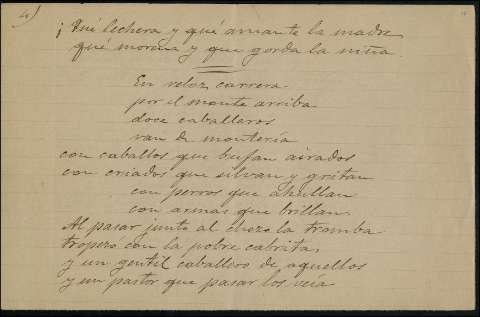 4)
¡Qué lechera y qué amante la madre
qué morena y que gorda la niña.
En veloz carrera
por el monte arriba
doce caballeros
van de montería
con caballos que bufan airados
con criados que silvan y gritan
con perros que ahullan
con armas que brillan.
Al pasar junto al chozo la tromba
tropezó con la pobre cabrita,
y un gentil caballero de aquellos
y un pastor que pasar los veía